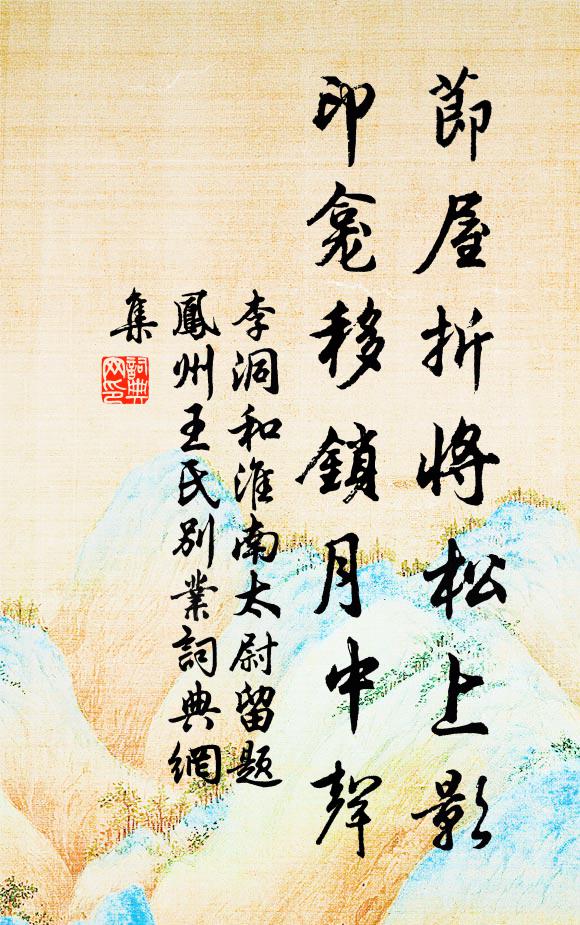 節屋折將松上影
印龕移鎖月中聲
李洞和淮南太尉留題
鳳州王氏別業詞典網
集
詞典
网印